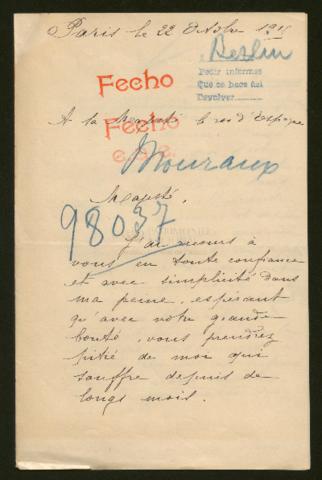 Paris le 22 Octobre 1915
Berlin
Fecho
Pedir informes
Que se hace así
Devolver
A Sa Majesté le roi d'Espagne
Fecho
Mouraux
Majesté,
98037
J'ai recours à
vous en toute confiance
et avec simplicité dans
ma peine, espérant
qu'avec votre grande
bonté, vous prendrez
pitié de moi qui
souffre depuis de
longs mois.